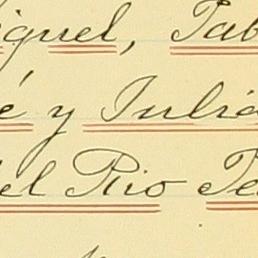 iguel, Tab
é y Juliá
del Rio Te